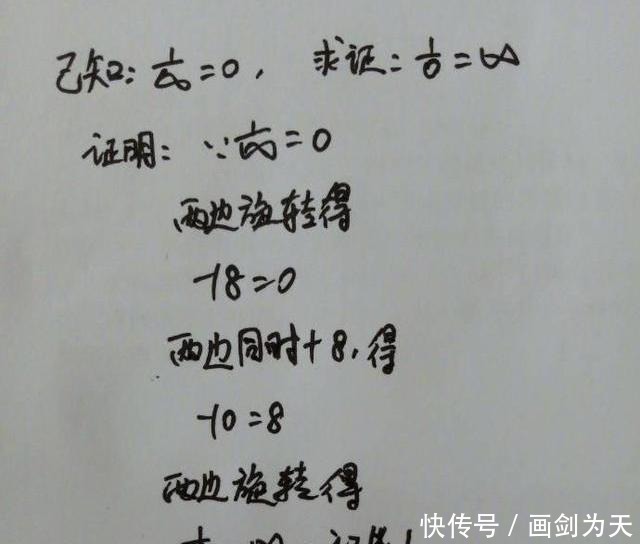 已知: 1/∞=0, 求证: 1/0=∞
证明: ∵1/∞=0
两边旋转得
-18=0
两边同时+8,得
-10=8
两边旋转得
快传号/画剑为天